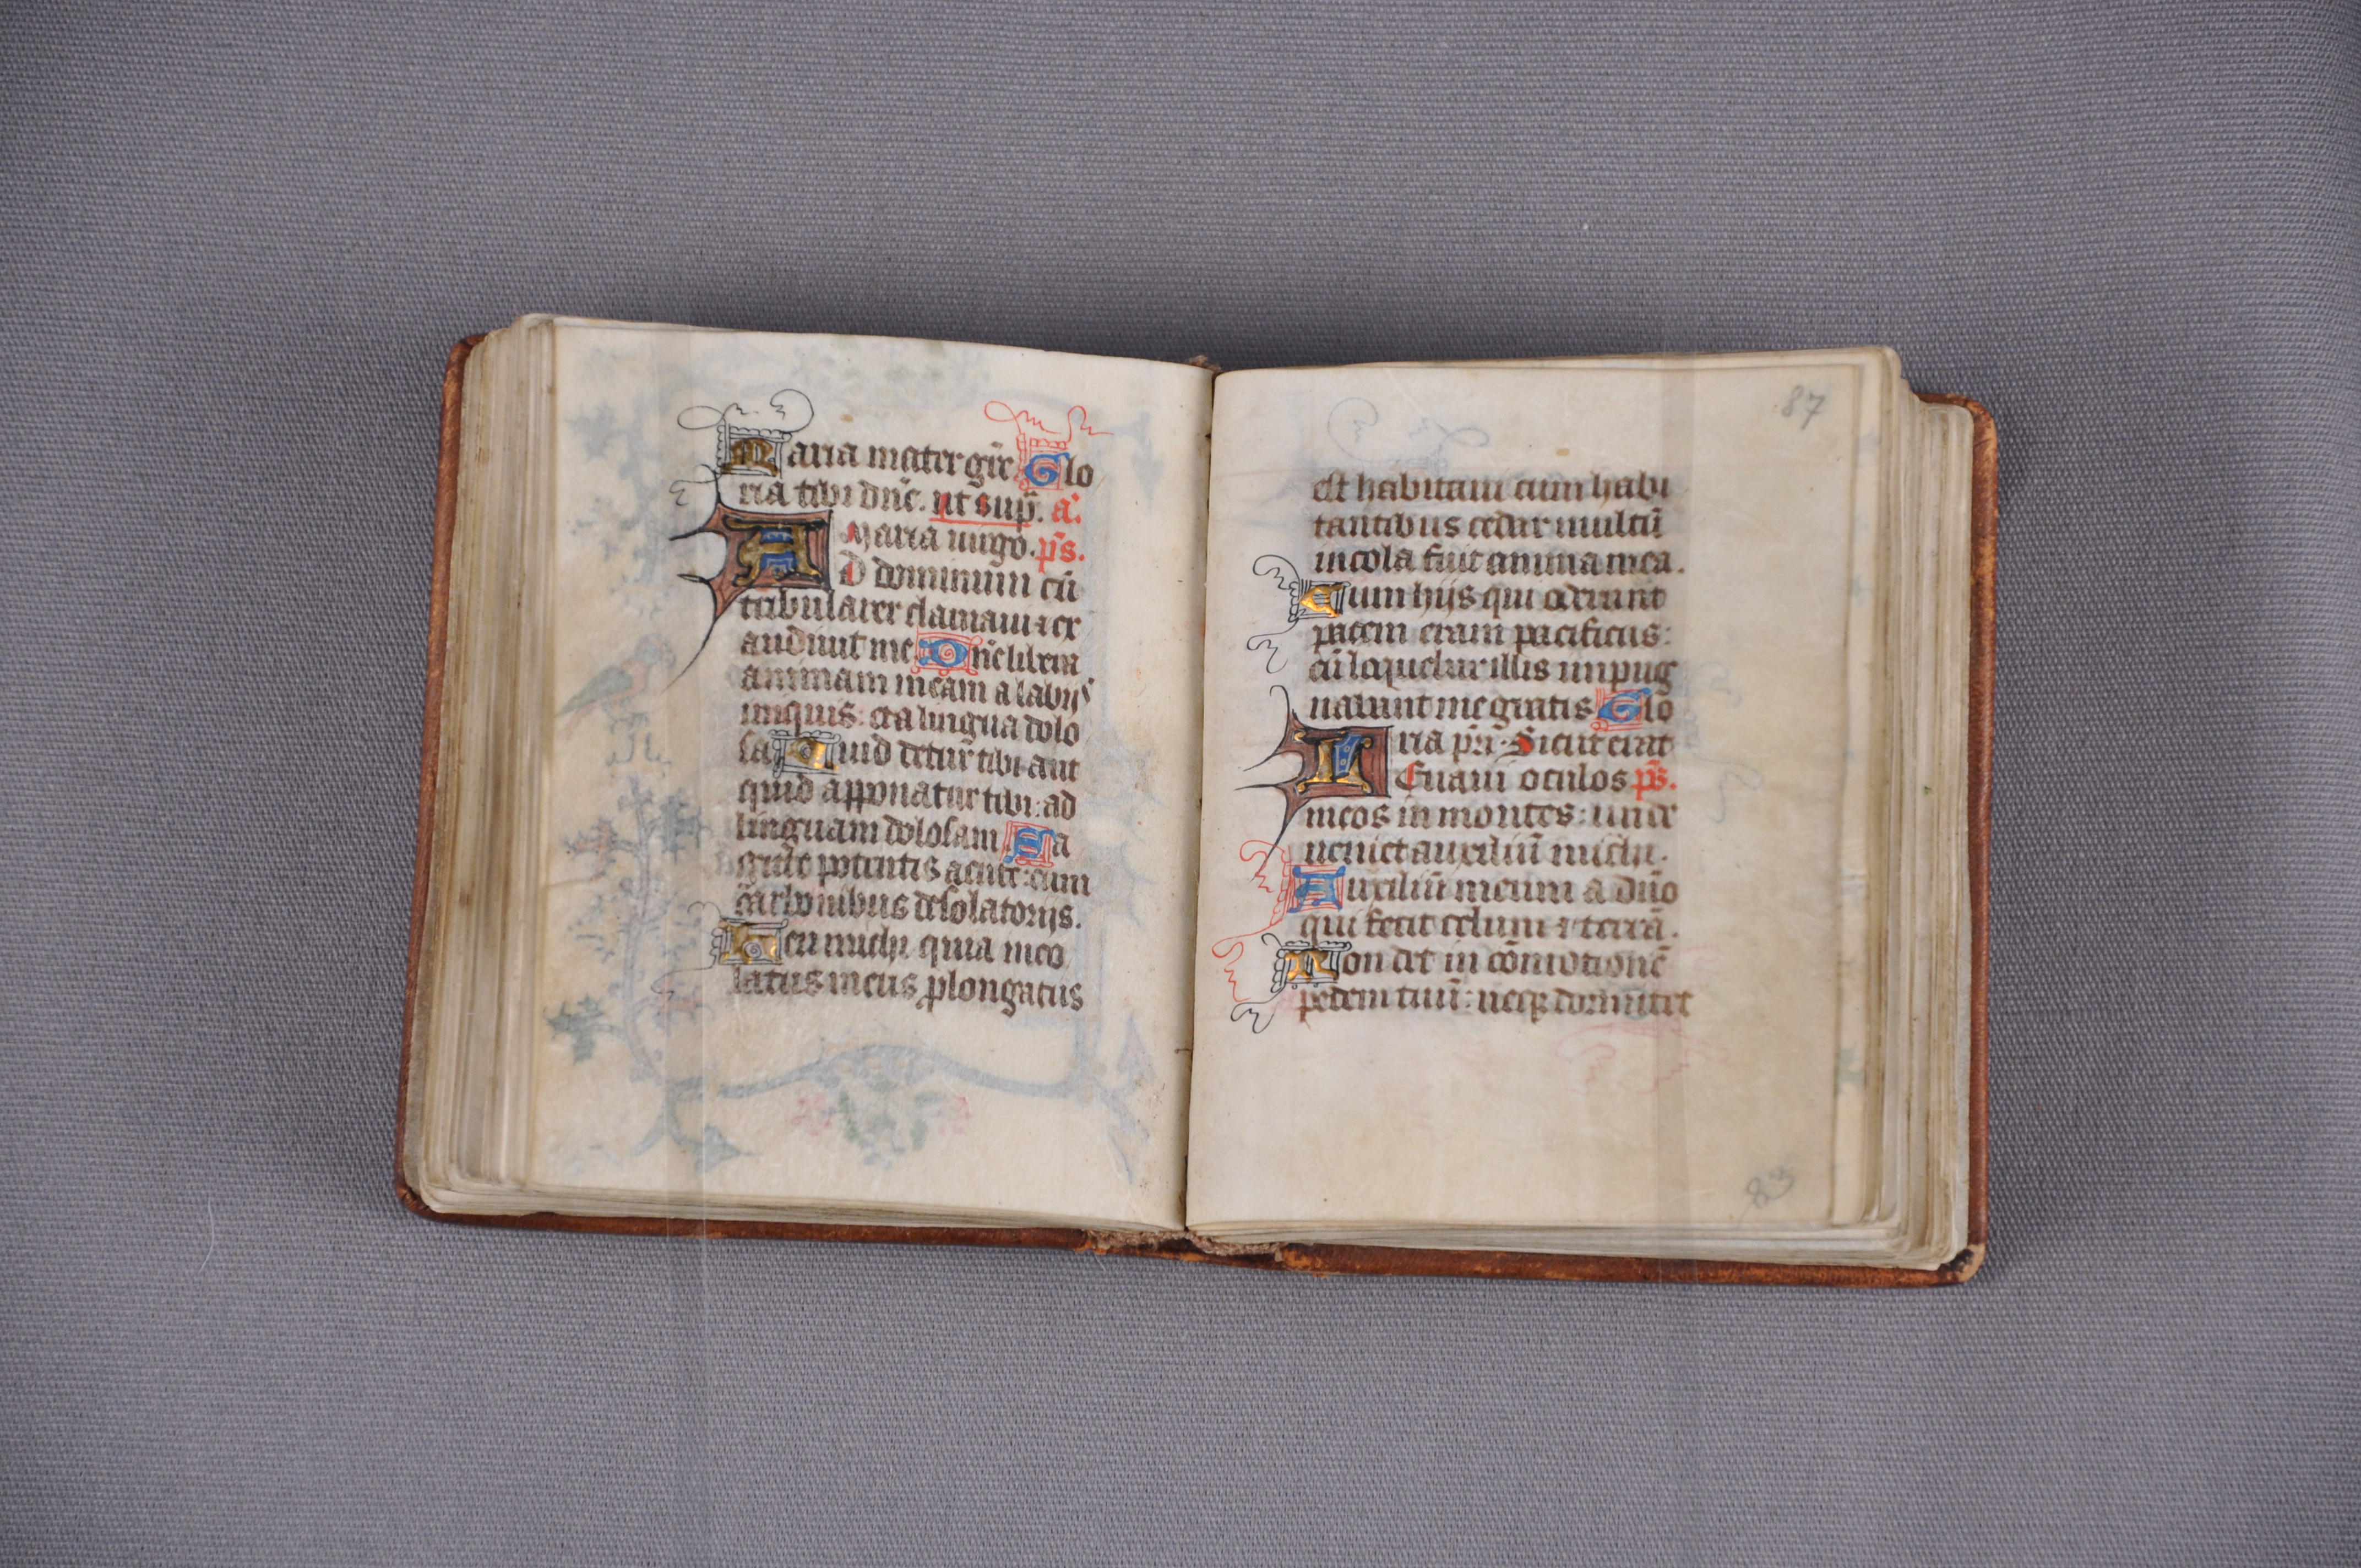 Maria mater gr̃e Glo
ria tibi dñe. ut sup̃. a᷈.
Maria uirgo. p̃s.
AD dominum cũ
tribularer clamaui ⁊ ex
audiuit me Dñe libera
animam meam a labijs
iniquis: et a lingua dolo
sa Quid detur̃ tibi aut
quid apponatur tibi: ad
linguam dolosam Sa
gitte potentis acute: cum
carbonibus desolatorijs.
Heu michi quia inco
latus meus ꝓlongatus
87
est habitaui cum habi
tantibus cedar multũ
incola fuit anima mea.
Cum hijs qui oderunt
pacem eram pacificus:
cũ loquebar illis inpug
nabant me gratis Glo
ria p̃ri. Sicut erat
Leuaui oculos p̃s.
meos in montes: unde
ueniet auxiliũ michi.
Auxiliũ meum a dño
qui fecit celum ⁊ terrã.
Non det in cõmotionẽ
pedem tuũ: neqꝫ dormitet
83